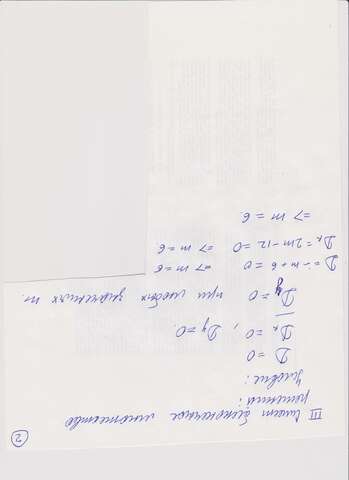 ②
III Имеет бесконечное множество
решений:
Условие:
D = 0
Dₓ = 0, Dy = 0
Dy = 0 при любых значениях m
D = -m + 6 = 0 => m = 6
Dₓ = 2m - 12 = 0 => m = 6
=> m = 6